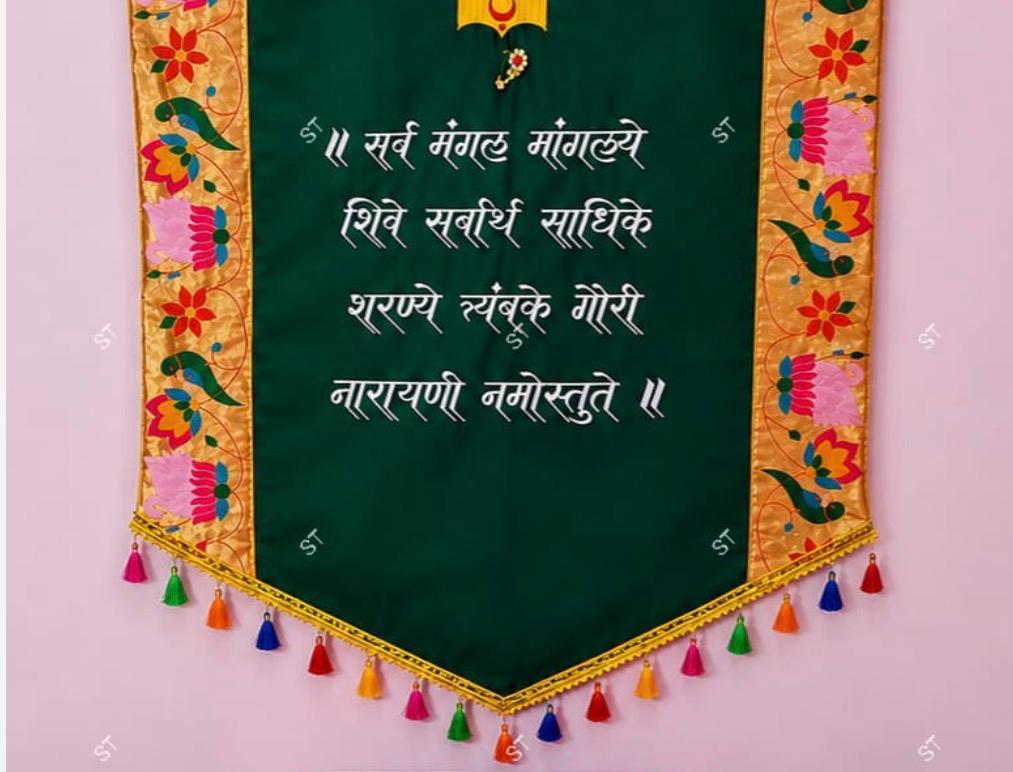 ॥ सर्व मंगल मांगलये
शिवे सर्बार्थ साधिके
शरण्ये त्र्यंबके गौरी
नारायणी नमोस्तुते ॥
ST
ST
ST
ST
ST
ST
ST
ST
ST